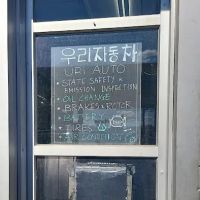 우리자동차
URI AUTO
• STATE SAFETY &
EMISSION INSPECTION
• OIL CHANGE
• BRAKES & ROTOR
• BATTERY
• TIRES